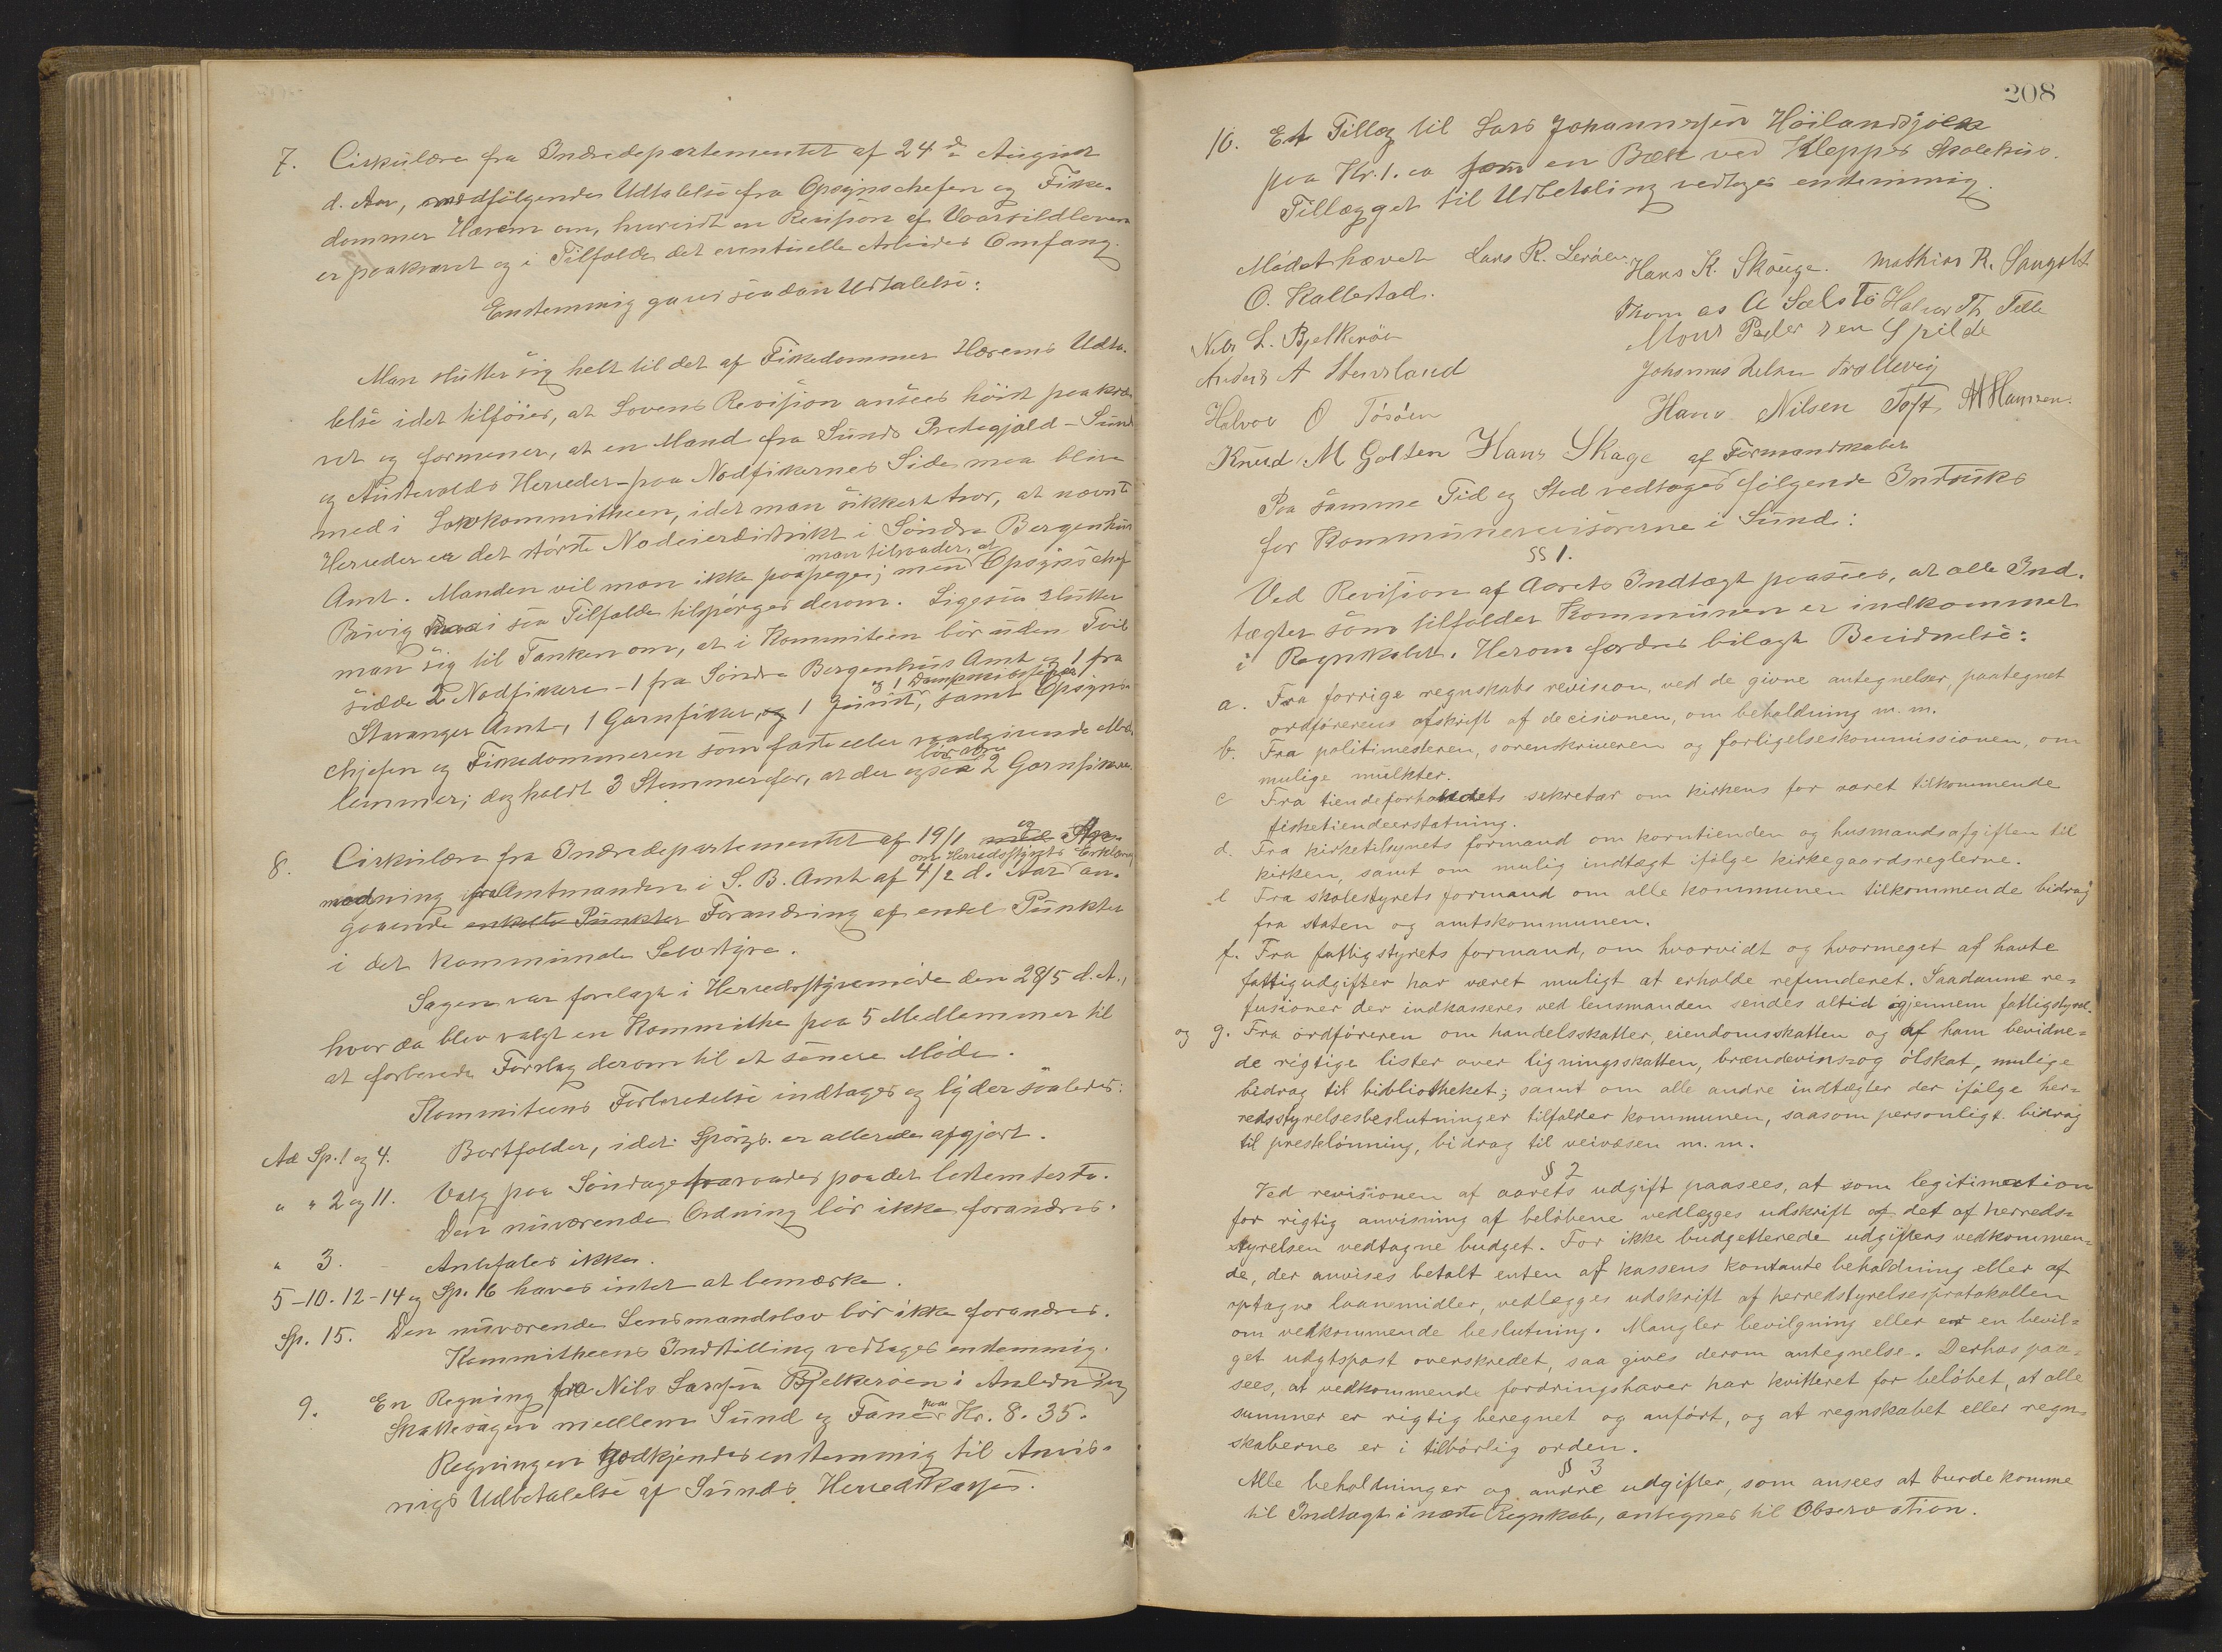 7. Cirkulære fra Indredepartementet af 24de August
d. Aar, medfölgende Udtalelse fra Opsynschefen og Fiske-
dommer Hærem om, hvorvidt en Revision af Vaarsildloven
er paakrævet og i Tilfælde det eventuelle Arbeides Omfang.
Enstemmig gaves saadan Udtalelse:
Man slutter sig helt til det af Fiskedommer Hærems Udta-
lelse idet tilföies, at Lovens Revision ansees höist paakræ-
vet og formener, at en Mand fra Sunds Prestegjæld - Sund
og Austevolds Herreder - paa Notfiskernes Side maa blive
med i Lovkommitheen, idet man sikkert tror, at nævnte
Herreder er det störste Nodeierdistrikt i Söndre Bergenhus
Amt. Manden vil man ikke paapege; men man tilraader, at Opsynschef
Buvig i saa Tilfælde tilspörges derom. Ligesaa slutter
man sig til Tanken om, at i Kommiteen bör uden Tvil
sidde 2 Nodfiskere - 1 fra Söndre Bergenhus Amt og 1 fra
Stavanger Amt, 1 Garnfisker, og 1 Jurist, og 1 Dampskibsfisker samt Opsyns-
chjefen og Fiskedommeren som faste eller raadgivende Med-
lemmer; dog holdt 3 Stemmer for, at der ogsaa bör være 2 Garnfiskere.
8. Cirkulære fra Indredepartementet af 19/1 med og An-
modning fra Amtmanden i S. B. Amt af 4/2 d. Aar om Herredsstyrets Erklæring an-
gaaende enkelte Punkter Forandring af endel Punkter
i det kommunale Selvstyre.
Sagen var forelagt i Herredsstyremöde den 28/5 d. A.,
hvor da blev valgt en Kommithe paa 5 Medlemmer til
at forberede Forslag derom til et senere Möde.
Kommiteens Forberedelse indtages og lyder saaledes:
Ad Sp. 1 og 4. Bortfalder, idet Spörgs. er allerede afgjort.
" " 2 og 11. Valg paa Söndage fraraades paa det bestemteste.
Den nuværende Ordning bör ikke forandres.
" 3. - Anbefales ikke.
5-10. 12-14 og Sp. 16 haves intet at bemærke.
Sp. 15. Den nuværende Lensmandslov bör ikke forandres.
Kommitheens Indstilling vedtages enstemmig.
9. En Regning fra Nils Larsen Bjelkeröen i Anledning
Skattesagen mellem Sund og Fane paa Kr. 8.35.
Regningen godkjendes enstemmig til Anvis-
nings Udbetalelse af Sunds Herredskasse.
208
10. Et Tillæg til Lars Johannessen Höilandsjöen
paa Kr. 1.00 for en Bæk ved Kleppes Skolehus.
Tillægget til Udbetaling vedtages enstemmig.
Mödet hævet Lars R. Leröen Hans K. Skouge. Mathias R. Sangolt
O. Kallestad. Thomas A Sælstö Halvor Th. Telle
Nils L. Bjelkeröen Mons Pedersen Spilde
Anders A Stensland Johannes Nilsen Trællevig
Halvor O Tösöen Hans Nilsen Toft M Hansen.
Knud M Golten Hans Skage af Formandskabet
Paa samme Tid og Sted vedtoges fölgende Instruks
for Kommunerevisorerne i Sund:
§ 1.
Ved Revision af Aarets Indtægt paasees, at alle Ind-
tægter som tilfalder Kommunen er indkommet
i Regnskabet. Herom fordres bilagt Bevidnelse:
a. Fra forrige regnskabs revision, ved de givne antegnelser, paategnet
ordförerens afskrift af decisionen, om beholdning m. m.
b. Fra politimesteren, sorenskriveren og forligelseskommissionen, om
mulige mulkter.
c Fra tiendeforholdets sekretær om kirkens for aaret tilkommende
fisketiendeerstatning.
d. Fra kirketilsynets formand om korntienden og husmandsafgiften til
kirken, samt om mulig indtægt ifölge kirkegaardsreglerne.
e Fra skolestyrets formand om alle kommunen tilkommende bidrag
fra staten og amtskommunen.
f. Fra fattigstyrets formand, om hvorvidt og hvormeget af havte
fattigudgifter har været muligt at erholde refunderet. Saadanne re-
fusioner der indkasseres ved lensmanden sendes altid igjennem fattigstyret.
og g. Fra ordföreren om handelsskatter, eiendomsskatten og af ham bevidne-
de rigtige lister over ligningsskatten, brændevins- og ölskat, mulige
bidrag til bibliotheket; samt om alle andre indtægter der ifölge her-
redsstyrelsesbeslutninger tilfalder kommunen, saasom personligt. bidrag
til prestelönning, bidrag til veivæsen m. m.
§ 2
Ved revisionen af aarets udgift paasees, at som legitimation
for rigtig anvisning af belöbene vedlægges udskrift af det af herreds-
styrelsen vedtagne budget. For ikke budgetterede udgifters vedkommen-
de, der anvises betalt enten af kassens kontante beholdning eller af
optagne laanemidler, vedlægges udskrift af herredstyrelsesprotokollen
om vedkommende beslutning. Mangler bevilgning eller er en bevil-
get udgtspost overskredet, saa gives derom antegnelse. Derhos paa-
sees, at vedkommende fordringshaver har kvitteret for belöbet, at alle
summer er rigtig beregnet og anfört, og at regnskabet eller regn-
skaberne er i tilbörlig orden.
§ 3
Alle beholdninger og andre udgifter, som ansees at burde komme
til Indtægt i næste Regnskab, antegnes til Observation.